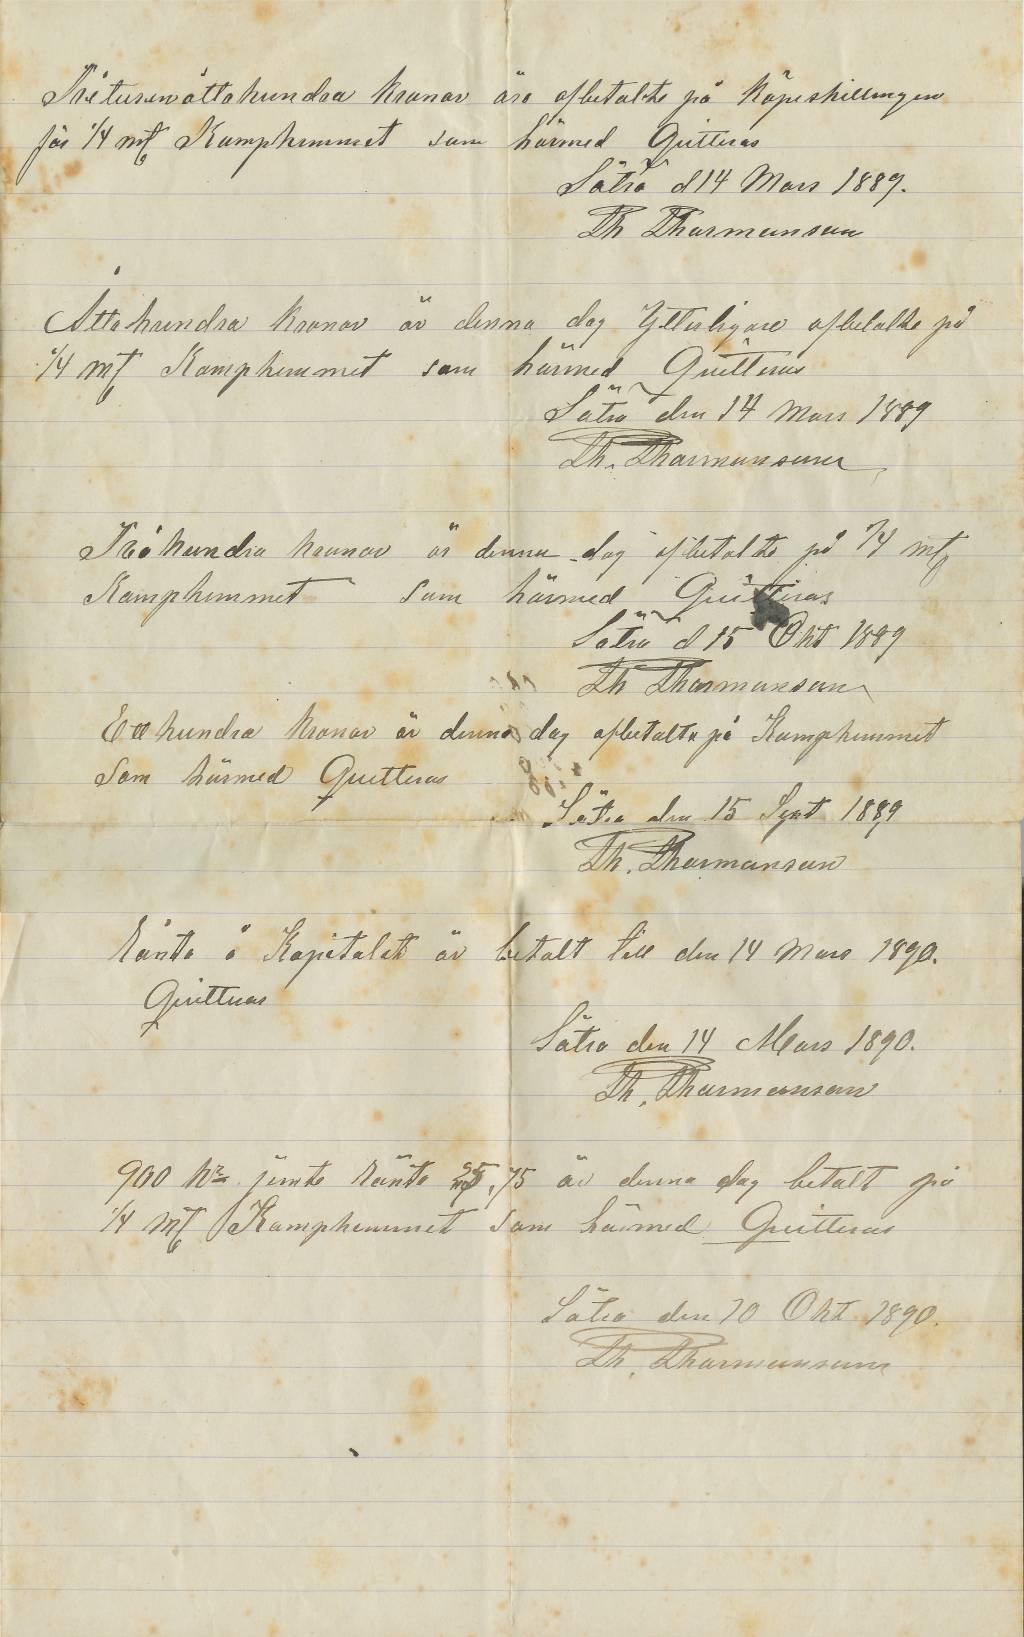 Tretusenåttahundra kronor äro afbetalte på Köpeskillingen
för 1/4 mtl Kamphemmet som härmed Quitteras
Sätra d 14 Mars 1889.
Th Thormansson
Åttahundra kronor är denna dag Ytterligare afbetalte på
1/4 mtl Kamphemmet som härmed Quitteras
Sätra den 14 Mars 1889
Th. Thormansson
Tvåhundra kronor är denna dag afbetalte på 1/4 mtl
Kamphemmet som härmed Quitteras
Sätra d 15 Okt 1889
Th Thormansson
Ett hundra kronor är denna dag afbetalta på Kamphemmet
som härmed Quitteras
Sätra den 15 Sept 1889
Th. Thormansson
Ränta å Kapitalet är betalt till den 14 Mars 1890.
Quitteras
Sätra den 14 Mars 1890.
Th. Thormansson
900 kr jemte Ränta 75 är denna dag betalt på
1/4 mtl Kamphemmet som härmed Quitteras
Sätra den 10 Okt 1890.
Th. Thormansson